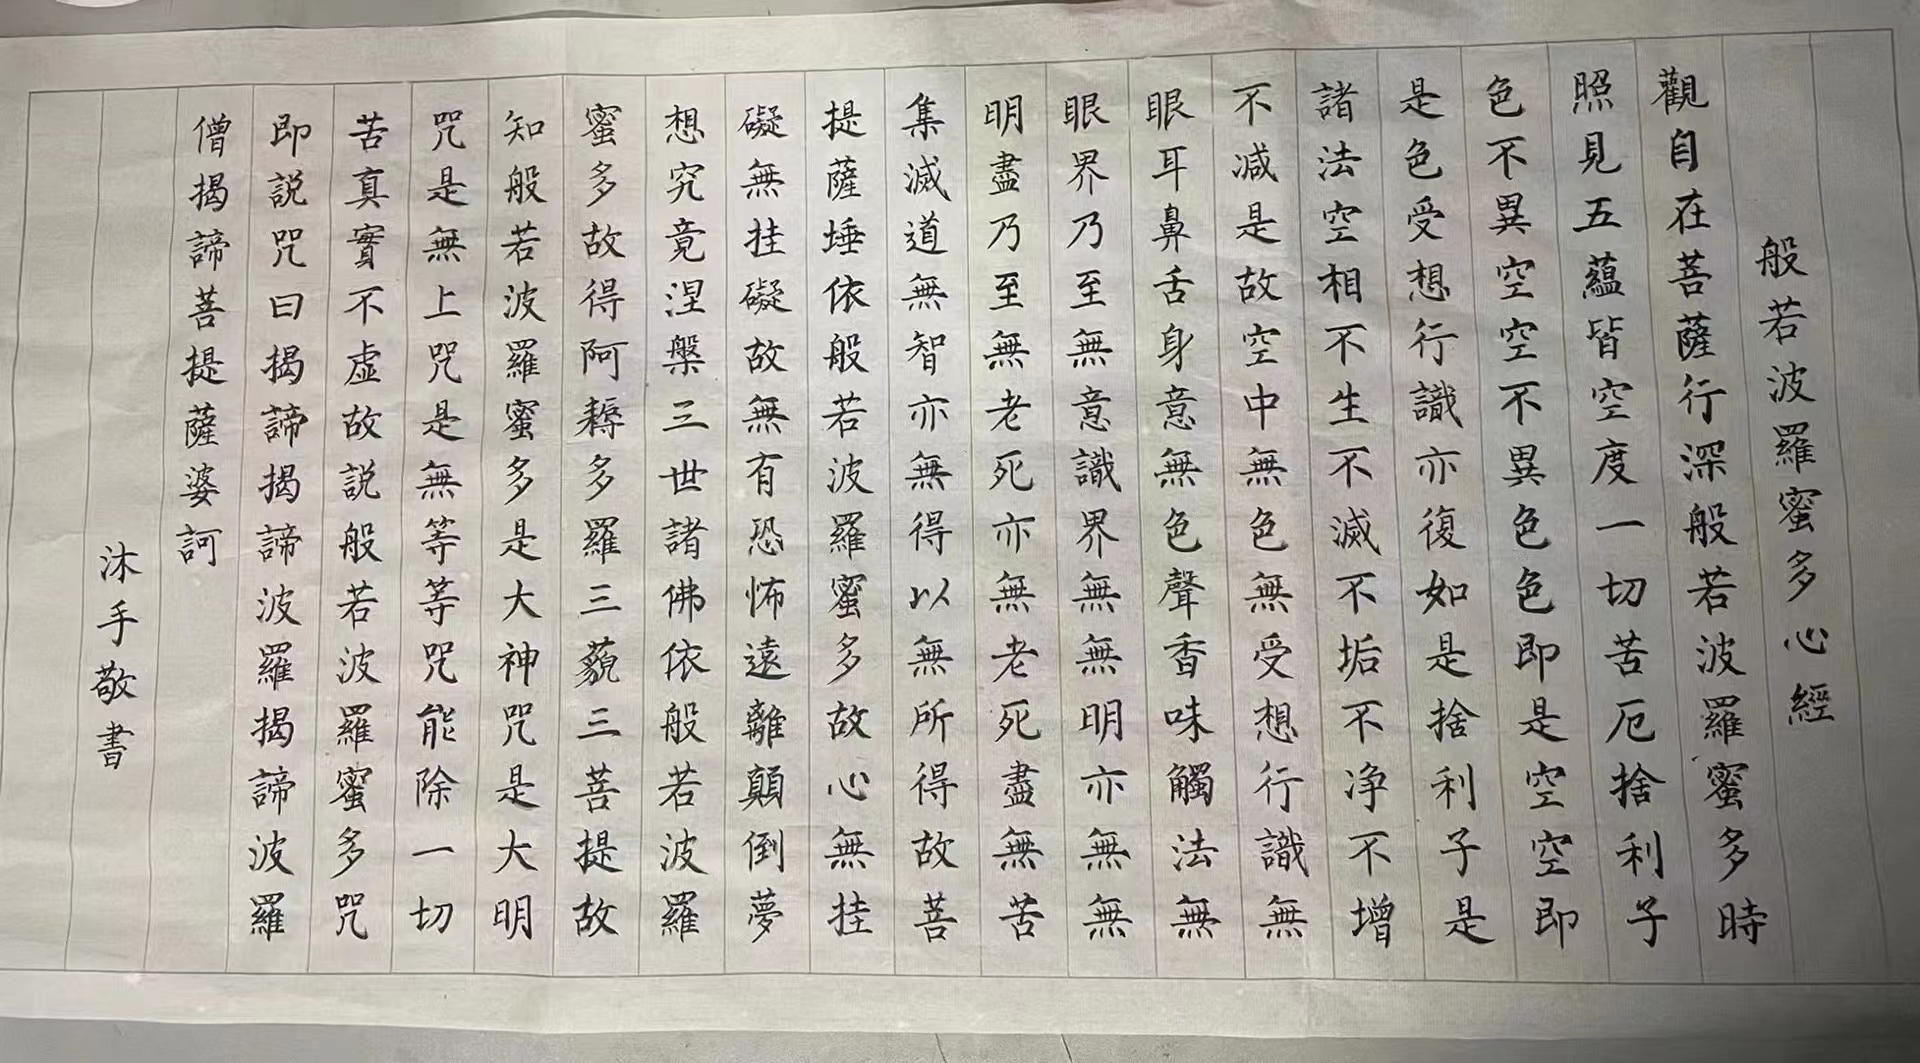 般若波羅蜜多心經
觀自在菩薩行深般若波羅蜜多時
照見五蘊皆空度一切苦厄捨利子
色不異空空不異色色即是空空即
是色受想行識亦復如是捨利子是
諸法空相不生不滅不垢不净不增
不減是故空中無色無受想行識無
眼耳鼻舌身意無色聲香味觸法無
眼界乃至無意識界無無明亦無無
明盡乃至無老死亦無老死盡無苦
集滅道無智亦無得以無所得故菩
提薩埵依般若波羅蜜多故心無挂
礙無挂礙故無有恐怖遠離顛倒夢
想究竟涅槃三世諸佛依般若波羅
蜜多故得阿耨多羅三藐三菩提故
知般若波羅蜜多是大神咒是大明
咒是無上咒是無等等咒能除一切
苦真實不虛故説般若波羅蜜多咒
即説咒曰揭諦揭諦波羅揭諦波羅
僧揭諦菩提薩婆訶
沐手敬書